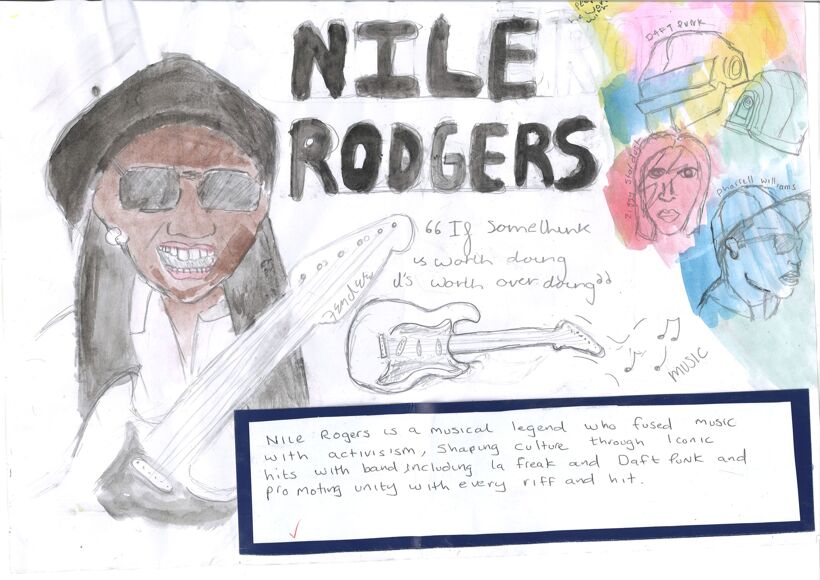 NILE
RODGERS
he wor
with
DAFT PUNK
Ziggy Stardust
pharrell williams
“If Somethink
is worth doing
it's worth over doing”
Fender
MUSIC
Nile Rogers is a musical legend who fused music
with activisism, shaping culture through Iconic
hits with band including la freak and Daft Punk and
promoting unity with every riff and hit.